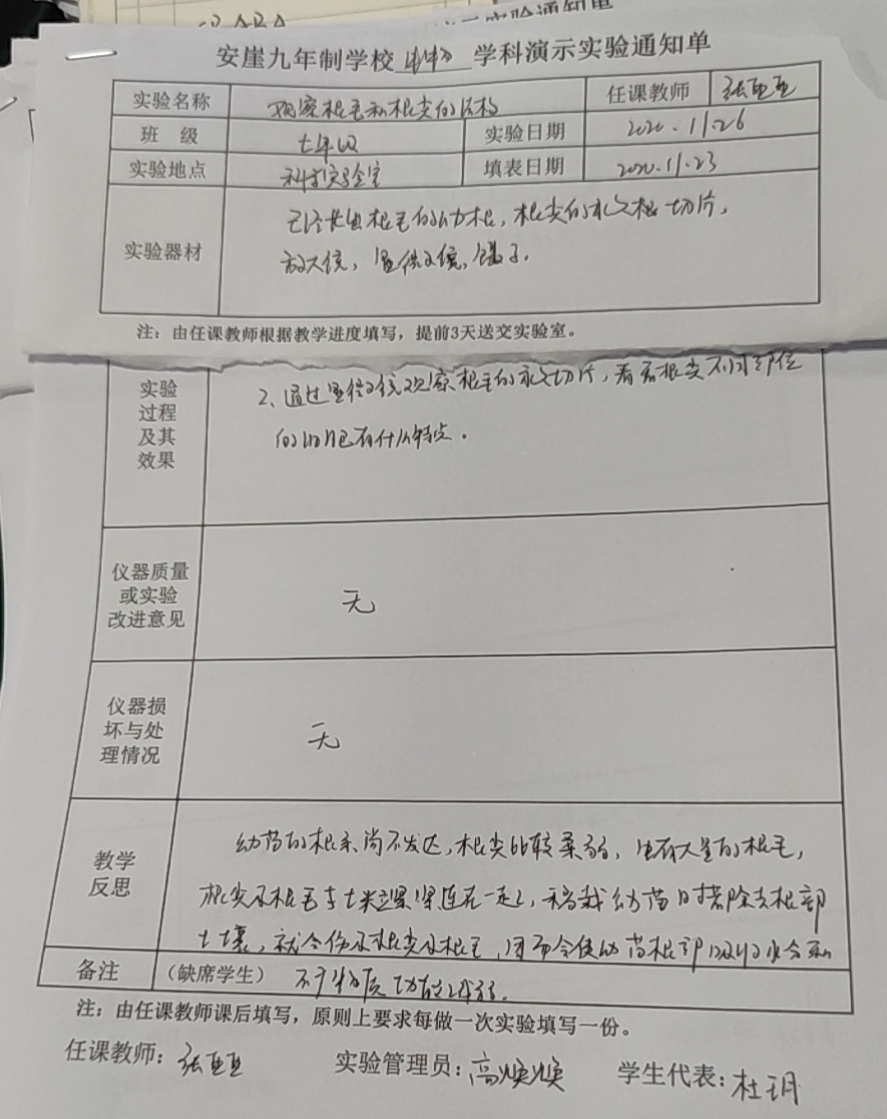 安崖九年制学校 生物 学科演示实验通知单
实验名称 观察根毛和根尖的结构 任课教师 张亚亚
班 级 七年级 实验日期 2020.11.26
实验地点 科学实验室 填表日期 2020.11.23
实验器材
已经长出根毛的幼根，根尖的永久根切片，
放大镜，显微镜，镊子.
注：由任课教师根据教学进度填写，提前3天送交实验室。
实验
过程
及其
效果
2、通过显微镜观察根毛的永久切片，看看根尖不同部位
的细胞有什么特点.
仪器质量
或实验
改进意见
无
仪器损
坏与处
理情况
无
教学
反思
幼苗的根系尚不发达，根尖比较柔弱，也有大量的根毛，
根尖及根毛与土壤紧紧连在一起，移栽幼苗时若除去根部
土壤，就会伤及根尖及根毛，因而会使幼苗根部吸收水分和
备注 （缺席学生） 无机物质功能减弱.
注：由任课教师课后填写，原则上要求每做一次实验填写一份。
任课教师：张亚亚 实验管理员：高焕焕 学生代表：杜玥